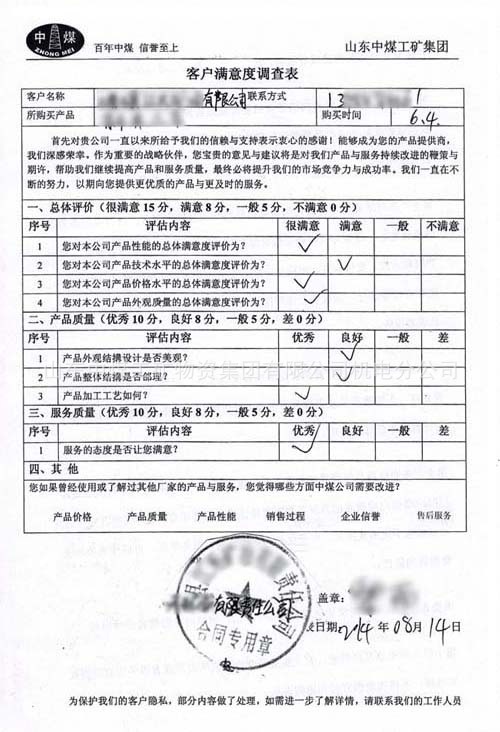 中 煤
ZHONG MEI
百年中煤 信誉至上
山东中煤工矿集团
客户满意度调查表
客户名称 有限公司 联系方式 13 1
所购买产品 购买时间 6.4.
首先对贵公司一直以来所给予我们的信赖与支持表示衷心的感谢！能够成为您的产品提供商，
我们深感荣幸。作为重要的战略伙伴，您宝贵的意见与建议将是对我们产品与服务持续改进的鞭策与
期许，帮助我们继续提高产品和服务质量，最终必将提升我们的市场竞争力与成功率。我们一直在不
断的努力，以期向您提供更优质的产品与更及时的服务。
一、总体评价（很满意 15 分，满意 8 分，一般 5 分，不满意 0 分）
序号 评估内容 很满意 满意 一般 不满意
1 您对本公司产品性能的总体满意度评价为？ ✓
2 您对本公司产品技术水平的总体满意度评价为？ ✓
3 您对本公司产品价格水平的总体满意度评价为？ ✓
4 您对本公司产品外观质量的总体满意度评价为？ ✓
二、产品质量（优秀 10 分，良好 8 分，一般 5 分，差 0 分）
序号 评估内容 优秀 良好 一般 差
1 产品外观结构设计是否美观？ ✓
2 产品整体结构是否部理？ ✓
3 产品加工工艺如何？ ✓
物资集团有限公司机电分公司
三、服务质量（优秀 10 分，良好 8 分，一般 5 分，差 0 分）
序号 评估内容 优秀 良好 一般 差
1 服务的态度是否让您满意？ ✓
四、其 他
您如果曾经使用或了解过其他厂家的产品与服务，您觉得哪些方面中煤公司需要改进？
产品价格 产品质量 产品性能 销售过程 企业信誉 售后服务
县 责任公司
有限责任公司
合同专用章
盖章：
日期：2014 年 08 月 14 日
为保护我们的客户隐私，部分内容做了处理，如需进一步了解详情，请联系我们的工作人员